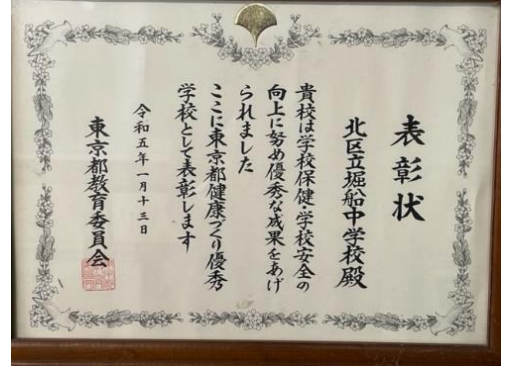 表彰状
北区立堀船中学校殿
貴校は学校保健・学校安全の
向上に努め優秀な成果をあげ
られました
ここに東京都健康づくり優秀
学校として表彰します
令和五年一月十三日
東京都教育委員会